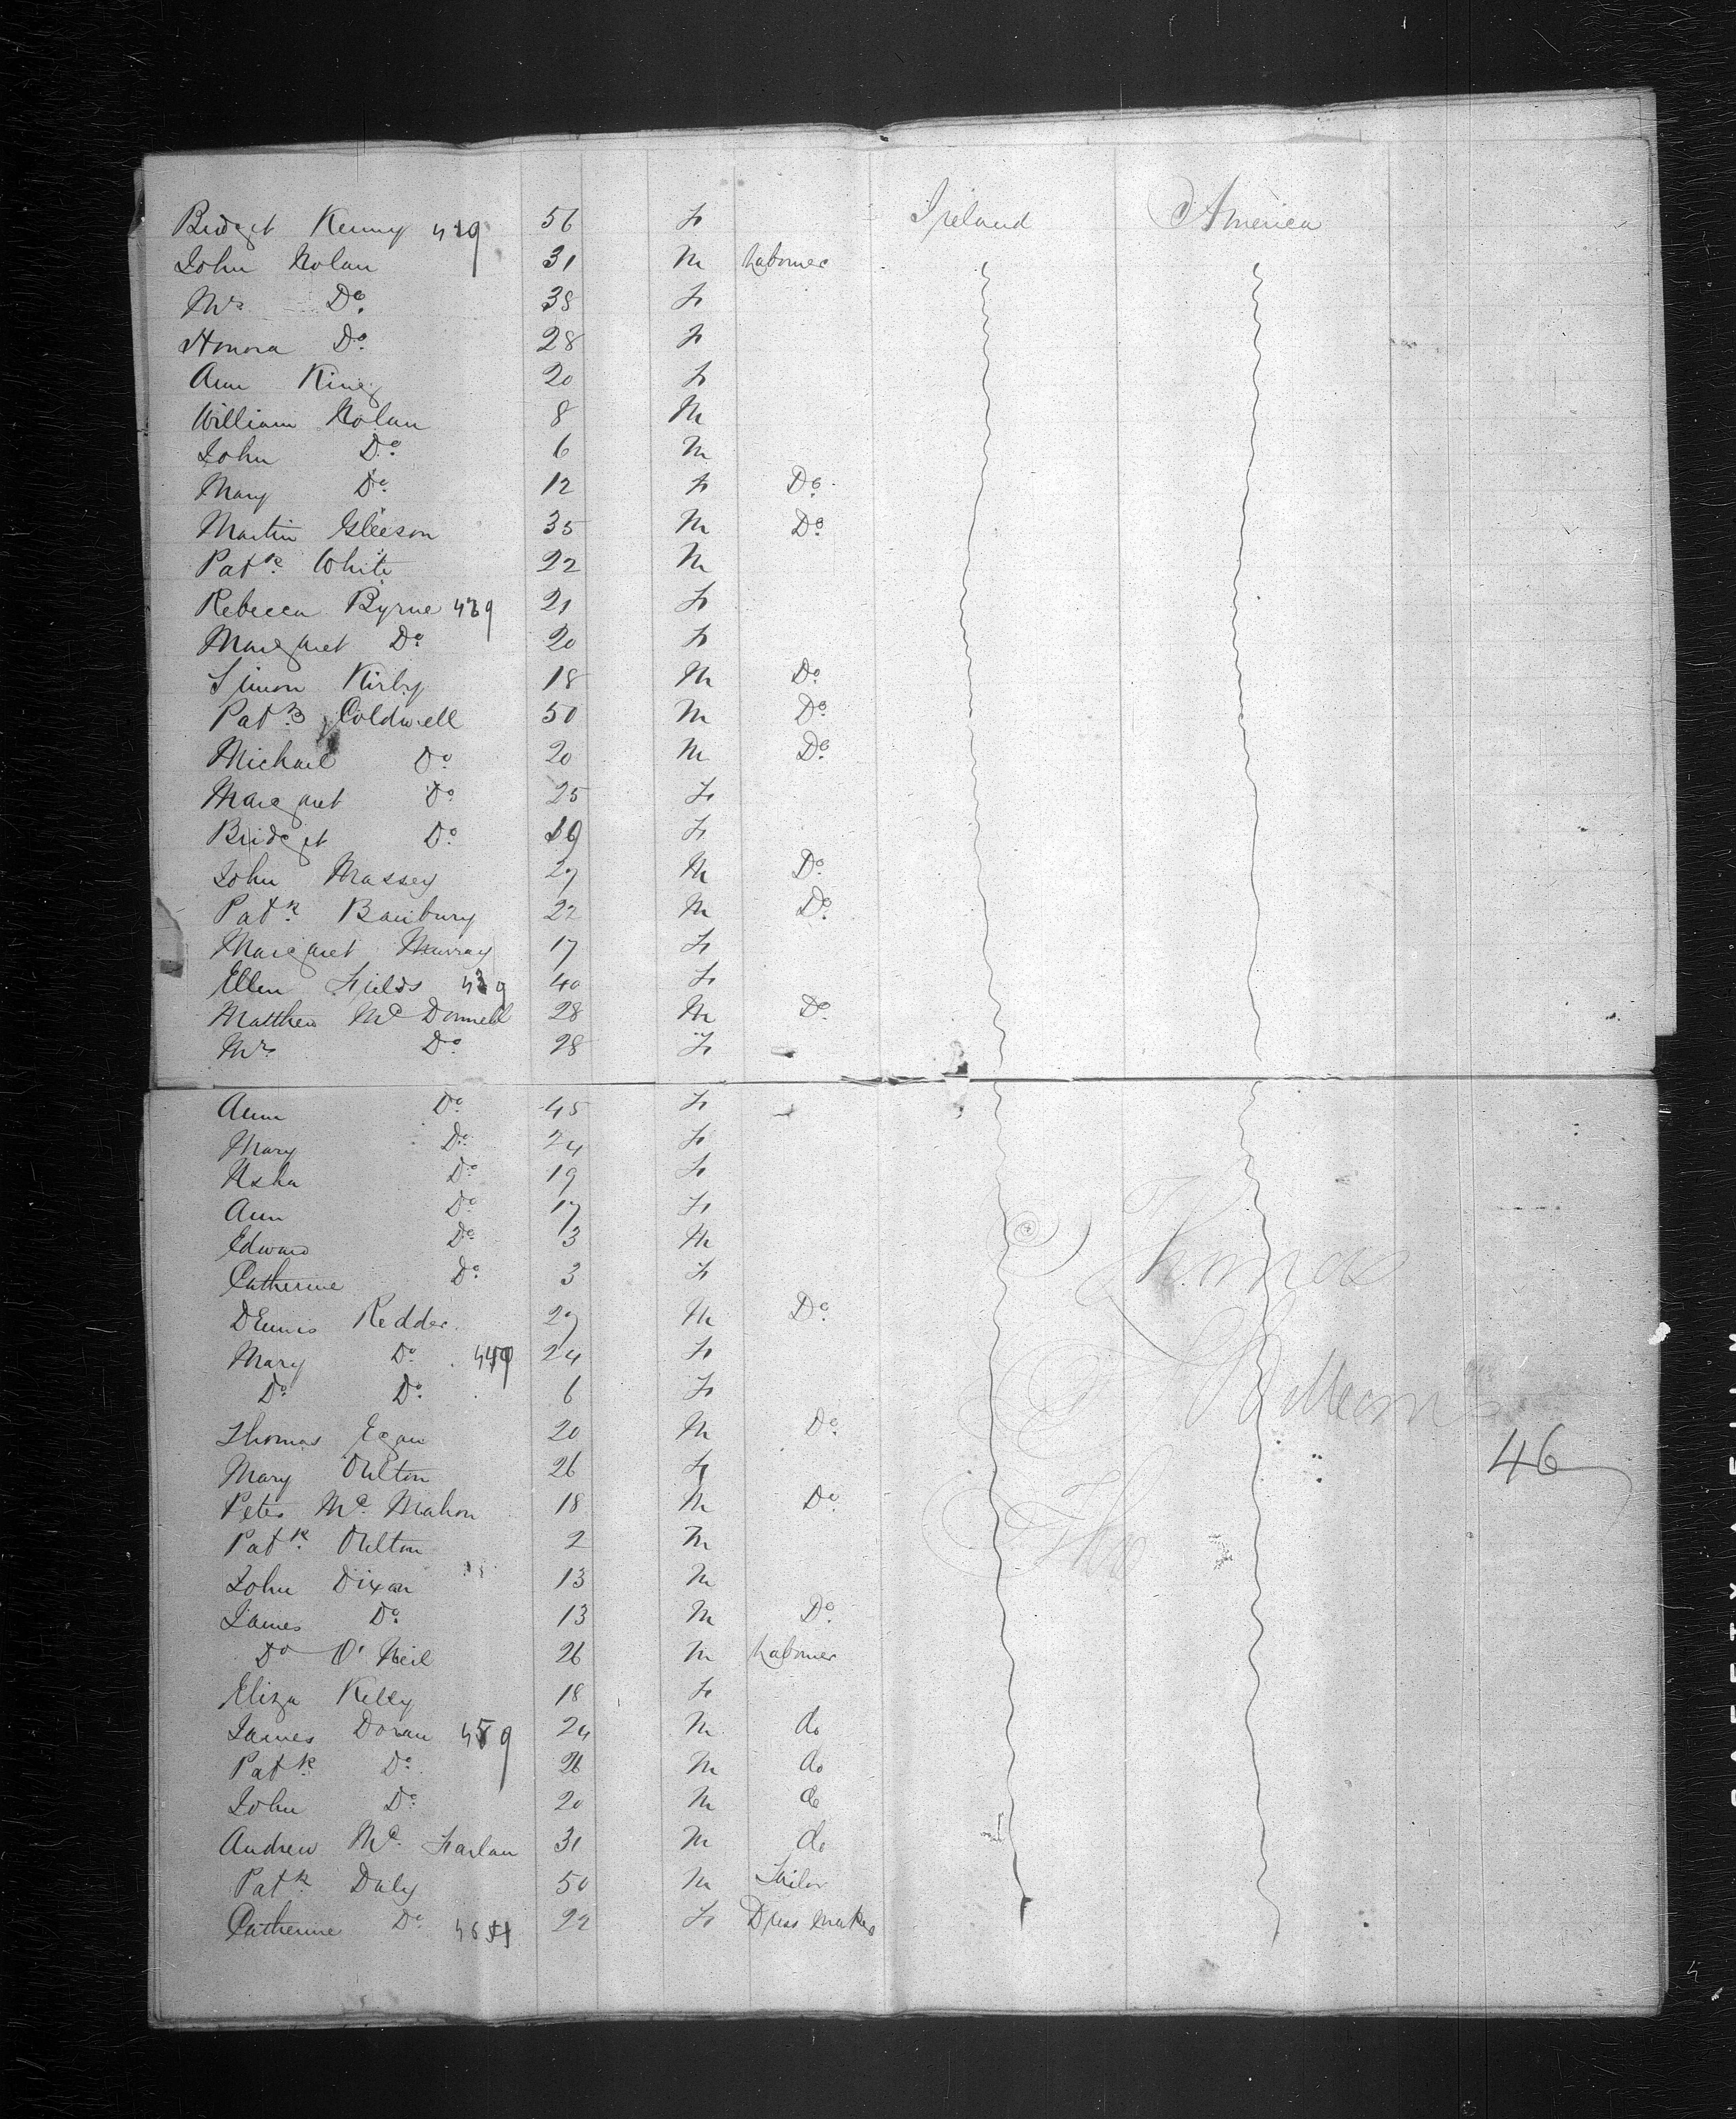 Bridget Kenny 419 56 F Ireland America
John Nolan 31 M Labourer
Mrs Do. 38 F
Honora Do. 28 F
Ann King 20 F
William Nolan 8 M
John Do. 6 M
Mary Do. 12 F Do.
Martin Gleeson 35 M Do.
Patk. White 22 M
Rebecca Byrne 429 21 F
Margaret Do. 20 F
Simon Kirby 18 M Do.
Patk. Coldwell 50 M Do.
Michael Do. 20 M Do.
Margaret Do. 25 F
Bridget Do. 19 F
John Massey 27 M Do.
Patk. Banbury 22 M Do.
Margaret Murray 17 F
Ellen Fields 439 40 F
Matthew Mc Donnell 28 M Do.
Mrs Do. 28 F
Ann Do. 45 F
Mary Do. 24 F
Do. 19 F
Ann Do. 17 F
Edward Do. 3 M
Catherine Do. 3 F
Thomas
Dennis Redder 27 M Do.
Mary Do. 449 24 F
Do. Do. 6 F
Williams
Thomas Egan 20 M Do.
46
Mary Oulton 26 F
Peter Mc. Mahon 18 M Do.
Patk. Oulton 2 M
Tho
John Dixon 13 M
James Do. 13 M Do.
Do O'Neil 26 M Labourer
Eliza Kelly 18 F
James Doran 459 24 M do
Patk. Do. 26 M do
John Do. 20 M do
Andrew Mc. Farlan 31 M do
Patk. Daly 50 M Tailor
Catherine Do. 22 F Dress maker